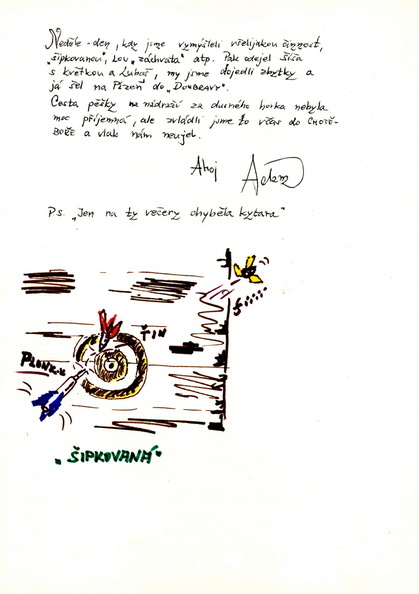 Neděle - den, kdy jsme vymýšleli všelijakou činnost,
„šipkovanou", hou „záchvatá" atp. Pak odejel Šíša
s květkou a Lubaš, my jsme dojedli zbytky a
já šel na Plzeň do „DOUBRAVY".
Cesta pěšky na nádraží za dusného horka nebyla
moc příjemná, ale zvládli jsme to včas do CHOTĚ-
BOŘE a vlak nám neujel.
Ahoj Adam
P.S. „Jen na ty večery chyběla kytara"
ŤIN
PLONK..
„ŠIPKOVANÁ"